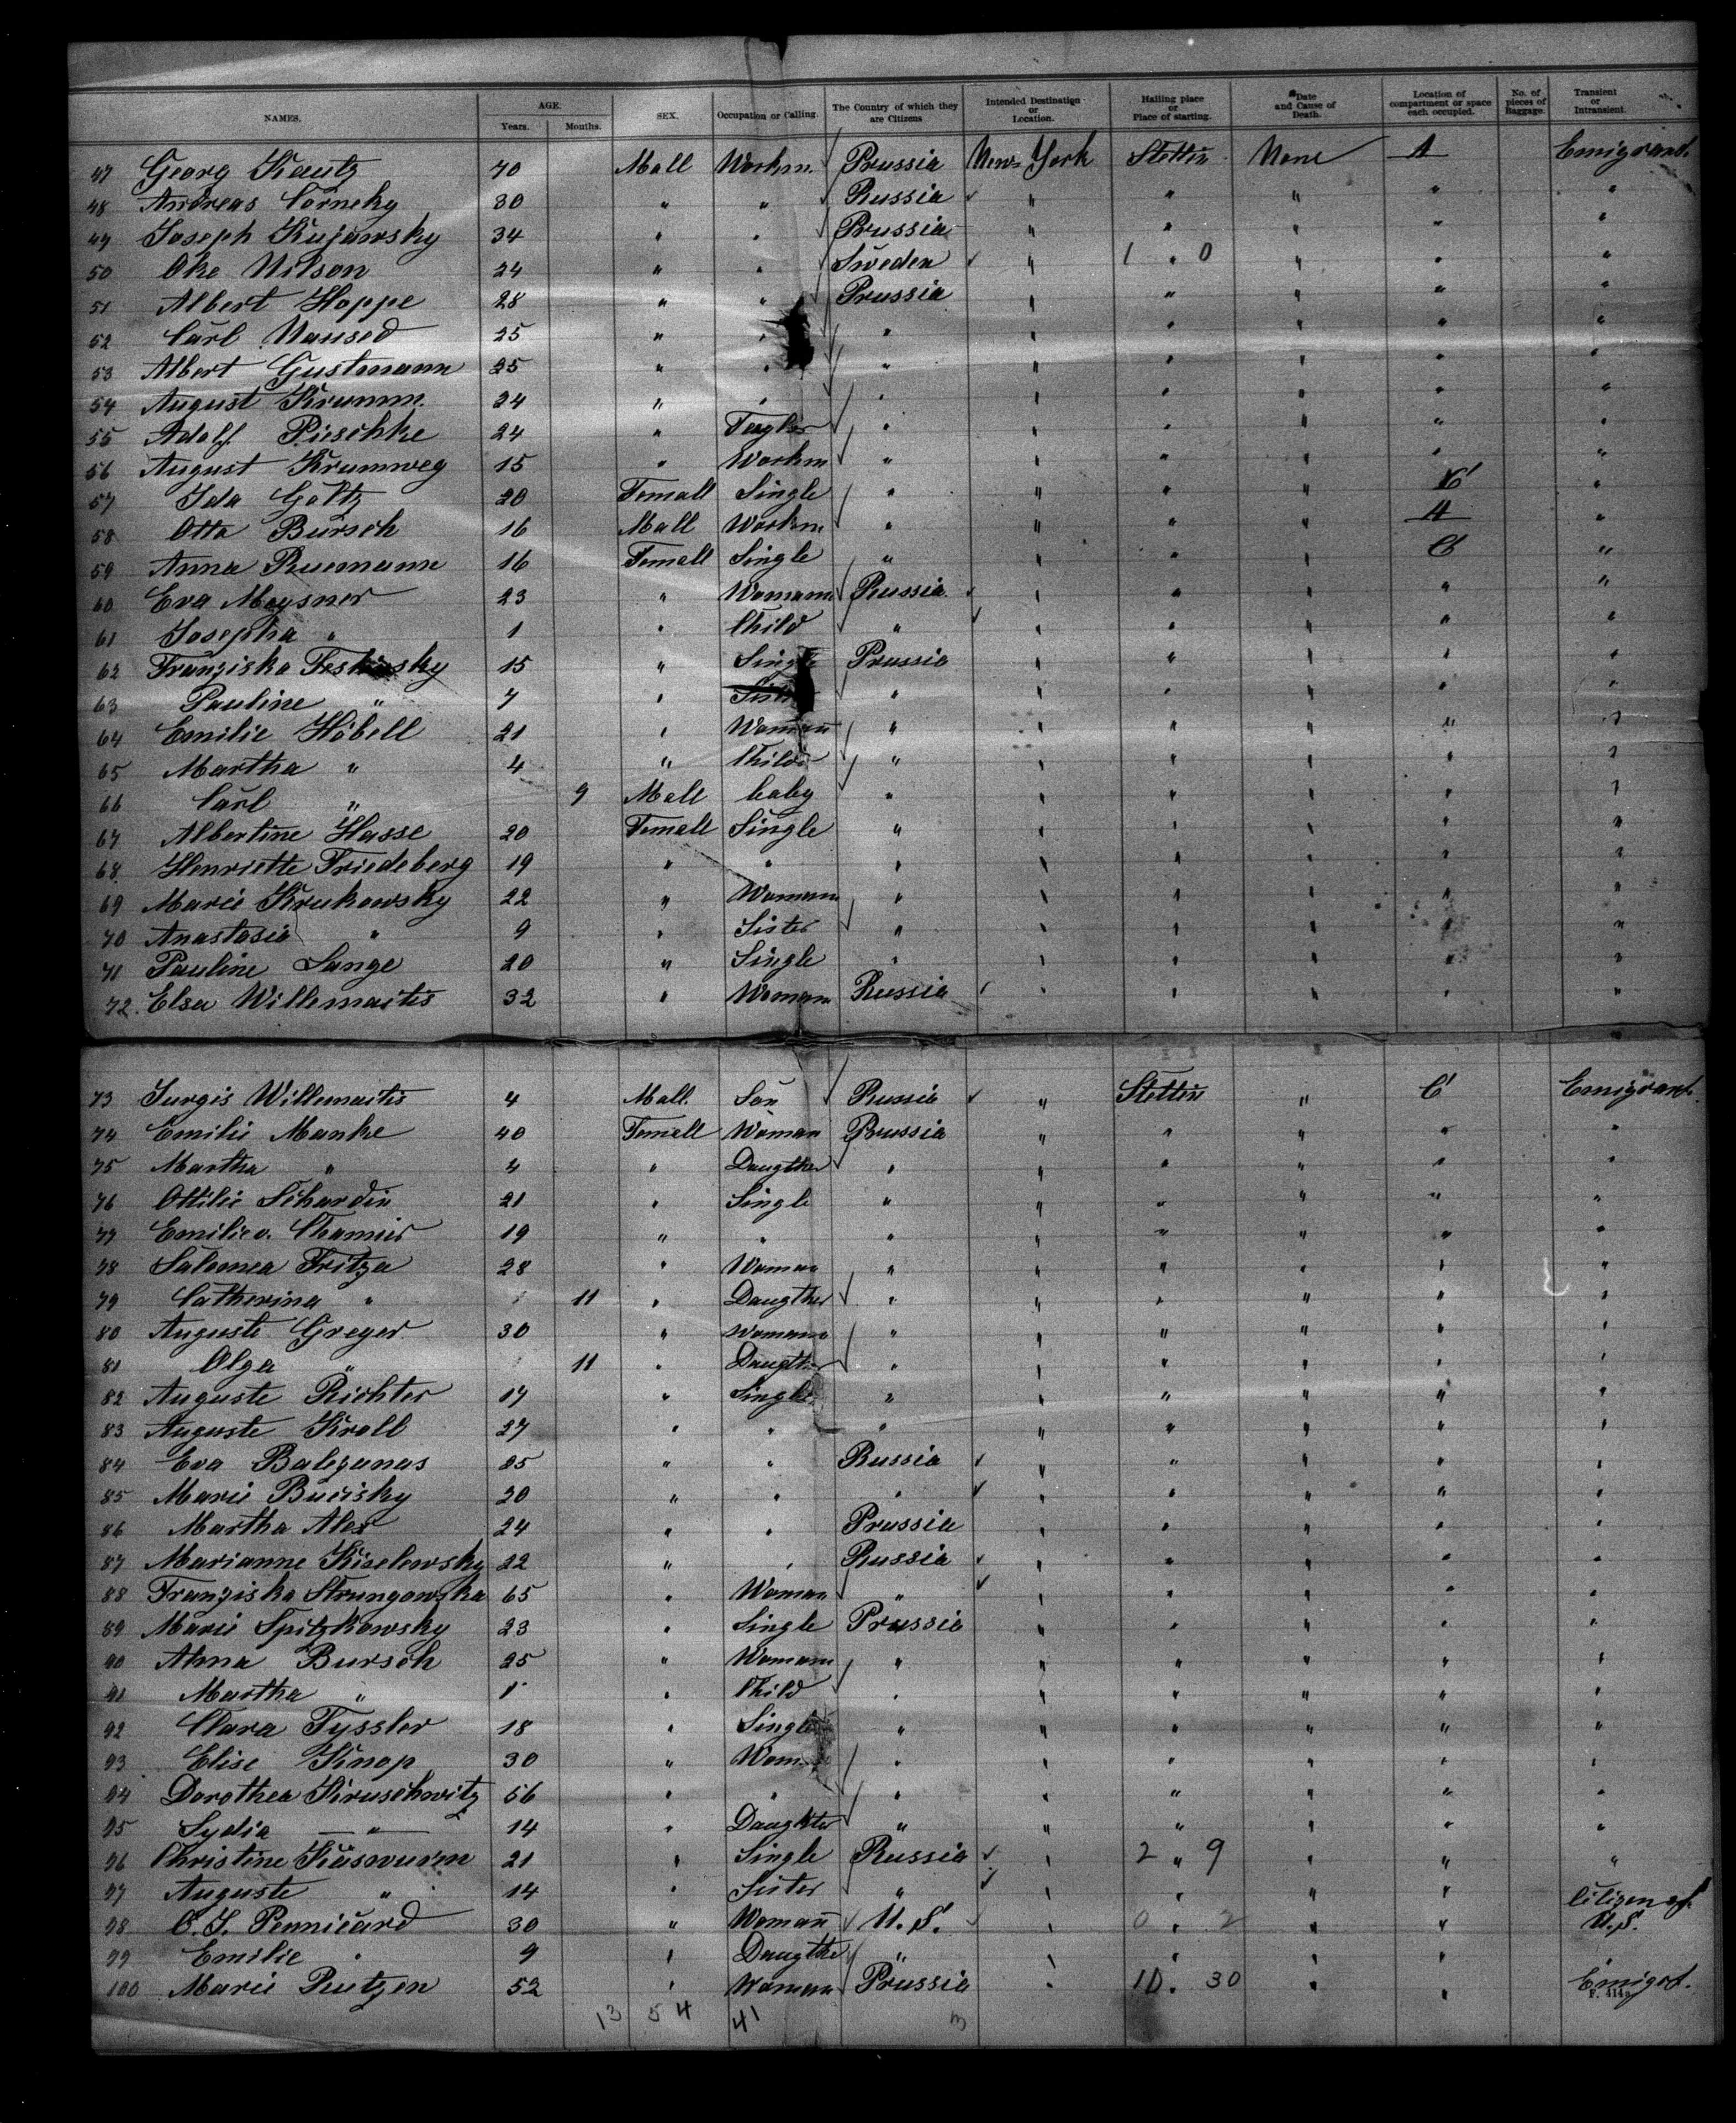 NAMES. AGE. Years. Months. SEX. Occupation or Calling. The Country of which they are Citizens Intended Destination or Location. Hailing place or Place of starting. Date and Cause of Death. Location of compartment or space each occupied. No. of pieces of Baggage. Transient or Intransient.
47 Georg Kautz 40 Mall Workm. Prussia New York Stettin None A Emigrant.
48 Andreas Corneky 30 " " Russia " " " " "
49 Joseph Kujawsky 34 " " Prussia " " " " "
50 Oke Nilson 24 " " Sweden " 1 " 0 " " "
51 Albert Hoppe 28 " " Prussia " " " " "
52 Carl Maused 25 " " " " " " " "
53 Albert Gustmann 25 " " " " " " " "
54 August Krumm. 24 " " " " " " " "
55 Adolf Pieschke 24 " " " " " " "
56 August Krumweg 15 " Workm " " " " " "
57 Ida Goltz 20 Femall Single " " " " C "
58 Otto Bursch 16 Mall Workm " " " " A "
59 Anna Ruemann 16 Femell Single " " " " C "
60 Eva Meysner 23 " Womann Russia " " " " "
61 Josepha " 1 " Child " " " " " "
62 Franziska 15 " Single Prussia " " " " "
63 Pauline " 7 " " " " " " "
64 Emilie Höbell 21 " Woman " " " " " "
65 Martha " 4 " Child " " " " " "
66 Carl " 9 Mall baby " " " " " "
67 Albertine Hasse 20 Femell Single " " " " " "
68 Henriette Friedeberg 19 " " " " " " " "
69 Marie Krukowsky 22 " Womann " " " " " "
70 Anastasia " 9 " Sister " " " " " "
71 Pauline Lange 20 " Single " " " " " "
72. Elsa Willemaitis 32 " Woman Russia " " " " "
73 Jurgis Willemaitis 4 Mall. Son Russia " Stettin " C Emigrant.
74 Emilie Manke 40 Femell Woman Prussia " " " " "
75 Martha " 4 " Daugther " " " " " "
76 Ottilie Schardin 21 " Single " " " " " "
77 Emilie v. Chamier 19 " " " " " " " "
78 Salomea Fritza 28 " Woman " " " " " "
79 Catherina " 11 " Daugther " " " " " "
80 Auguste Greger 30 " Womann " " " " " "
81 Olga " 11 " Daugther " " " " " "
82 Auguste Richter 17 " Single " " " " " "
83 Auguste Kroll 27 " " " " " " " "
84 Eva Balezunas 25 " " Russia " " " " "
85 Marie Bucisky 20 " " " " " " " "
86 Martha Alex 24 " " Prussia " " " " "
87 Marianne Kiselewsky 22 " " Russia " " " " "
88 Franziska Strungowska 65 " Woman " " " " " "
89 Marie Spitzkowsky 23 " Single Prussia " " " " "
90 Anna Bursch 25 " Womann " " " " " "
91 Martha " 1 " Child " " " " " "
92 Clara Tyssler 18 " Single " " " " " "
93 Elise Knop 30 " Woman " " " " " "
94 Dorothea Kruschwitz 56 " " " " " " " "
95 Lydia " 14 " Daughter " " " " " "
96 Christine Kuswurm 21 " Single Russia " 2 " 9 " " "
97 Auguste " 14 " Sister " " " " "
98 C. J. Pennicard 30 " Woman U.S. " 0 " 2 " " Citizen of U.S.
99 Emilie " 9 " Daugther " " " " " "
100 Marie Rutzen 52 " Woman Prussia " 10. 30 " " Emigrt.
13 54 41 3